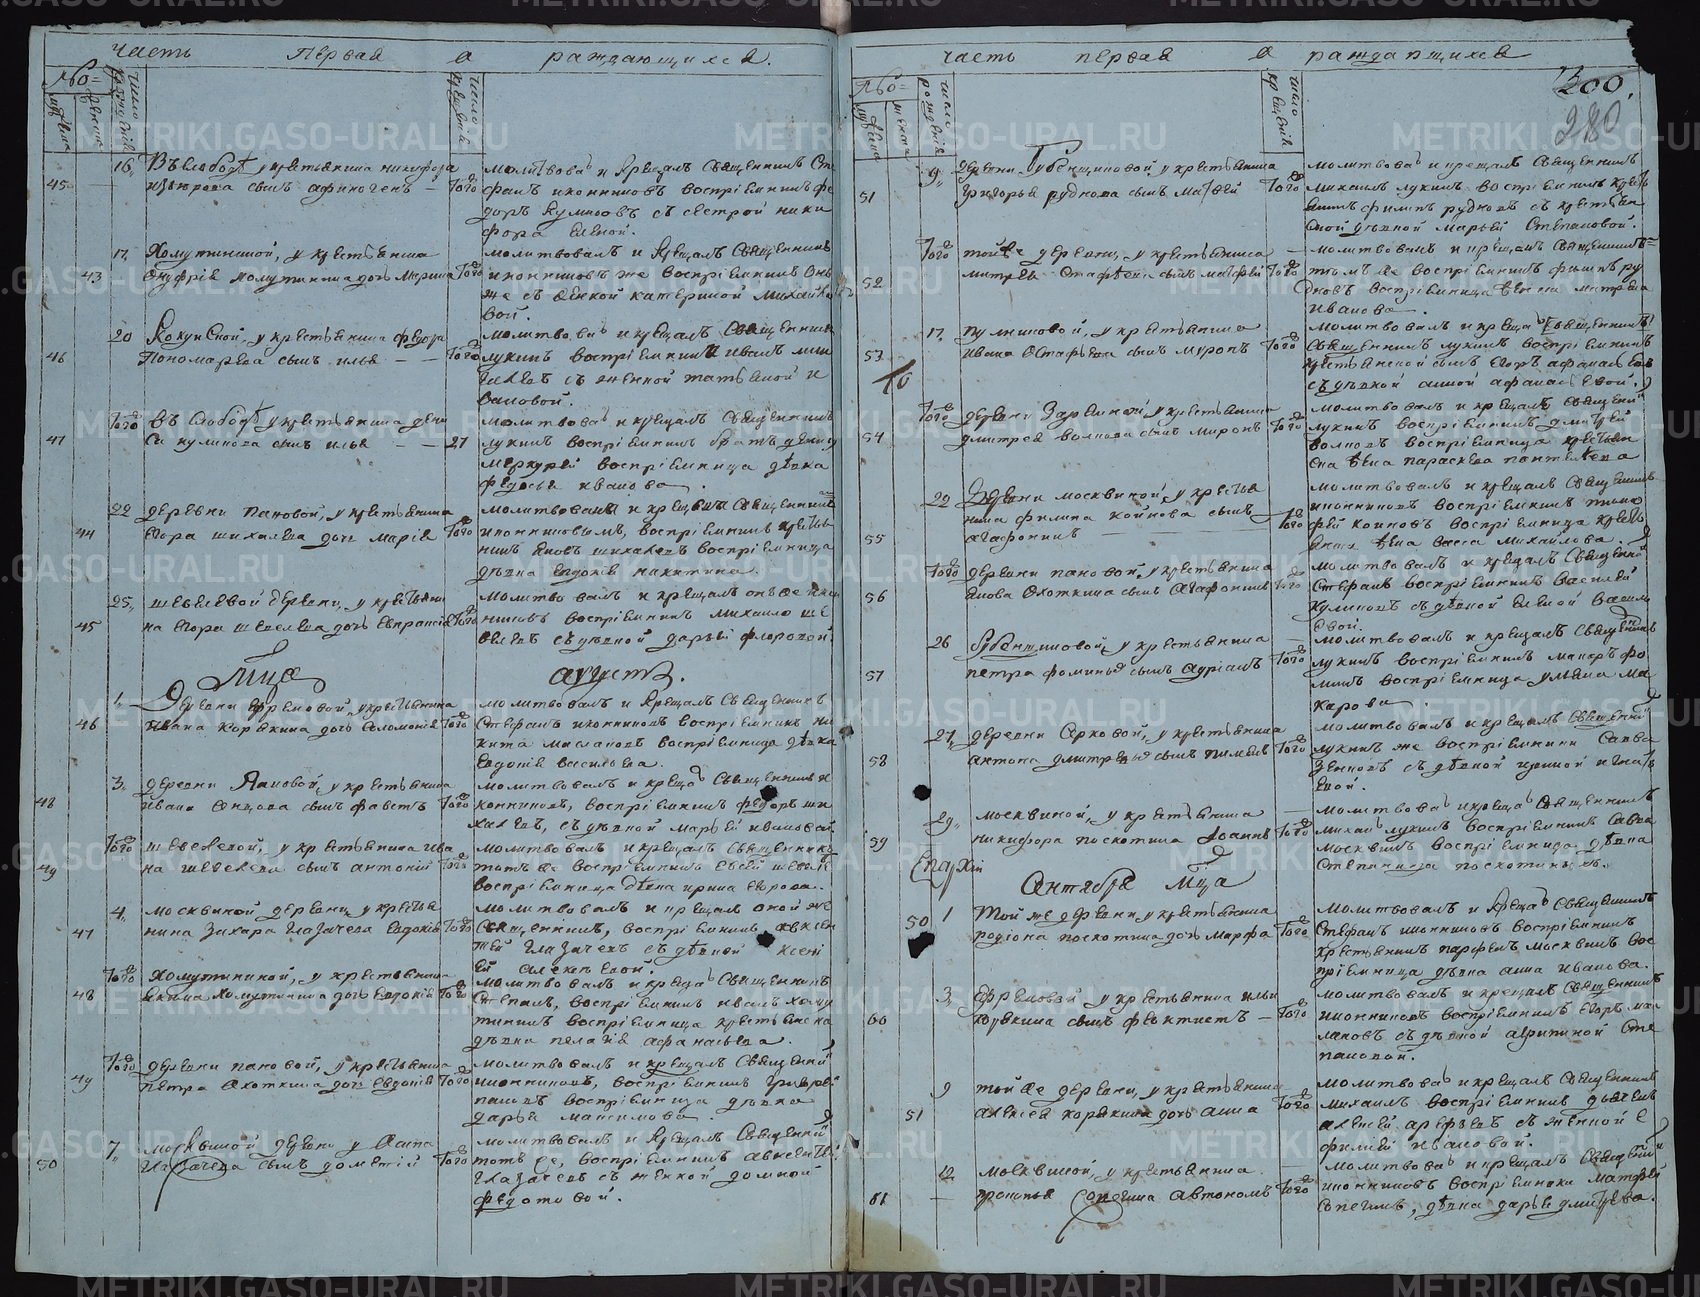 часть первая о раждающихся.
число рождения
число крещения
16, Въ слободѣ у крестьянина никифора
45 сынъ афиноген – того
молитвовалъ и крещалъ священникъ Сте
фанъ иконниковъ восприемникъ фе
доръ кулмовъ съ сестрой ники
фора еленой.
17, Хомутининой, у крестьянина
43 Онуфрия хомутинина дочь марина того
молитвовалъ и крещалъ священникъ
иконниковъ же восприемникъ онъ
же съ женкой катериной михайло
вой.
20 Кокуйской, у крестьянина федора
46 пономарева сынъ илья – – того
молитвовалъ и крещалъ священникъ
лукинъ восприемникъ иванъ
съ женкой татьяной и
вановой.
того въ слободѣ у крестьянина дени
47 са куликова сынъ илья – – 21
молитвовалъ и крещалъ священникъ
лукинъ восприемникъ братъ
меркурей восприемница дѣвка
федосья иванова.
22 деревни пановой, у крестьянина
44 егора шихалева дочь мария того
молитвовалъ и крещалъ священникъ
иконниковымъ, восприемникъ кресть
нинъ яковъ шихалевъ восприемница
дѣвка евдокия никитина.
25, шевелевой деревни, у крестьяни
45 на егора шевелева дочь евпраксия того
молитвовалъ и крещалъ
никовъ восприемникъ михайло ше
велевъ съ дѣвкой дарьей флоровой.
Мца августъ.
1, Деревни ефремовой, у крестьянина
46 ивана корякина дочь соломония того
молитвовалъ и крещалъ священникъ
Стефанъ иконниковъ восприемникъ ни
кита маслаковъ восприемница дѣвка
евдокия васильева.
3, деревни пановой, у крестьянина
48 ивана сынъ фавстъ того
молитвовалъ и крещалъ священникъ и
конниковъ, восприемникъ федоръ ши
халевъ, съ дѣвкой марьей ивановой.
того шевелевой, у крестьянина ива
49 на шевелева сынъ антоний того
молитвовалъ и крещалъ священникъ
тотъ же восприемникъ евсей шевеле
восприемница дѣвка ирина егорова.
4, москвиной деревни у крестья
47 нина Захара глазачева евдокия того
молитвовалъ и крещалъ оной же
священникъ, восприемникъ авксен
тей глазачевъ съ дѣвкой ксени
ей алексеевой.
того хомутининой, у крестьянина
48 якима хомутинина дочь евдокия того
молитвовалъ и крещалъ священникъ
стефанъ, восприемникъ иванъ хому
тининъ восприемница крестьянска
дѣвка пелагея афанасьева.
того деревни пановой, у крестьянина
49 петра охоткина дочь евдокия того
молитвовалъ и крещалъ священни
иконниковъ, восприемникъ григорей
пановъ восприемница дѣвка
дарья максимова.
7, москвиной деревни у
50 глазачева сынъ дометий того
молитвовалъ и крещалъ священни
тотъ же, восприемникъ авксентей
глазачевъ съ женкой домной
федотовой.
часть первая о раждающихся
300,
280
число рождения
число крещения
9, деревни Губенщиковой у крестьянина
51 григорья рудкова сынъ матвей того
молитвовалъ и крещалъ священникъ
михаилъ лукинъ восприемникъ кресть
янинъ филипъ рудковъ съ крестьян
ской дѣвкой марьей степановой.
того тойже деревни, у крестьянина –
52 матвея сынъ матфей того
молитвовалъ и крещалъ священникъ
тотъ же восприемникъ филипъ ру
дковъ восприемница матрена
иванова.
17, пулниковой, у крестьянина
53 ивана остафьева сынъ миронъ того
молитвовалъ и крещалъ священникъ
священникъ лукинъ восприемникъ
крестьянской сынъ егоръ афанасьевъ
съ дѣвкой анной афанасьевой.
того деревни Зырянкой, у крестьянина
54 дмитрея волкова сынъ миронъ того
молитвовалъ и крещалъ священни
лукинъ восприемникъ дмитрей
волковъ восприемница крестьян
ска жена параскева пантелеева
22 Деревни москвиной, у крестья
нина филипа койнова сынъ того
55 агафоникъ – –
молитвовалъ и крещалъ священникъ
иконниковъ восприемникъ тимо
фей койновъ восприемница кресть
янска жена васса михайлова.
того деревни пановой, у крестьянина
56 якова охоткина сынъ агафоникъ того
молитвовалъ и крещалъ священни
стефанъ восприемникъ василей
куликовъ съ дѣвкой еленой василь
евой.
26 губенщиковой, у крестьянина –
57 петра фоминыхъ сынъ адрианъ того
молитвовалъ и крещалъ священникъ
лукинъ восприемникъ макаръ фо
минъ восприемница ульяна ма
карова
27, деревни ярковой, у крестьянина
58 антона дмитрева сынъ пименъ того
молитвовалъ и крещалъ священни
лукинъ же восприемники савва
съ дѣвкой ириной игнать
евой.
29, москвиной, у крестьянина –
59 никифора поскотина Иоаннъ того
молитвовалъ и крещалъ священникъ
михаилъ лукинъ восприемникъ савва
москвинъ восприемница дѣвка
степанида поскотиныхъ.
Сентября Мца
1 той же деревни, у крестьянина
50 родиона поскотина дочь марфа того
молитвовалъ и крещалъ священникъ
стефанъ иконниковъ восприемникъ
крестьянинъ парфенъ москвинъ вос
приемница дѣвка анна иванова.
3, ефремовой у крестьянина ильи
60 корякина сынъ феоктистъ – того
молитвовалъ и крещалъ священникъ
иконниковъ восприемникъ егоръ мас
лаковъ съ дѣвкой агрипиной сте
пановой.
9 той же деревни, у крестьянина
51 алексея корякина дочь анна того
молитвовалъ и крещалъ священникъ
михаилъ восприемникъ дьячекъ
алексей арефьевъ съ женкой е
фимией ивановой.
12, москвиной, у крестьянина –
61 – прокопья сопегина автономъ того
молитвовалъ и крещалъ священни
иконниковъ восприемники матфей
сопегинъ, дѣвка дарья дмитрева.
METRIKI.GASO-URAL.RU